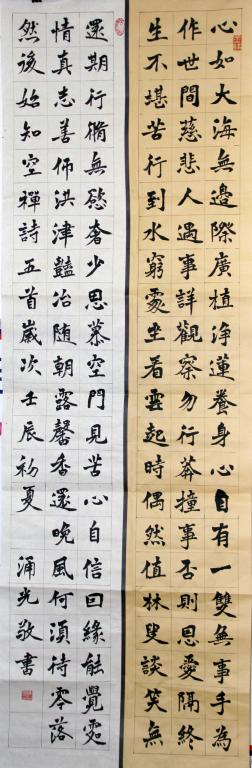 心如大海無邊際廣植淨蓮養身心自有一雙無事手為
作世間慈悲人遇事詳觀察勿行莽撞事否則恩愛隔終
生不堪苦行到水窮處坐看雲起時偶然值林叟談笑無
還期行脩無愆奢少思慕空門見苦心自信回緣能覺處
情真志善師洪津豔冶随朝露馨香還晚風何須待零落
然後始知空禪詩五首歲次壬辰初夏 涌光敬書